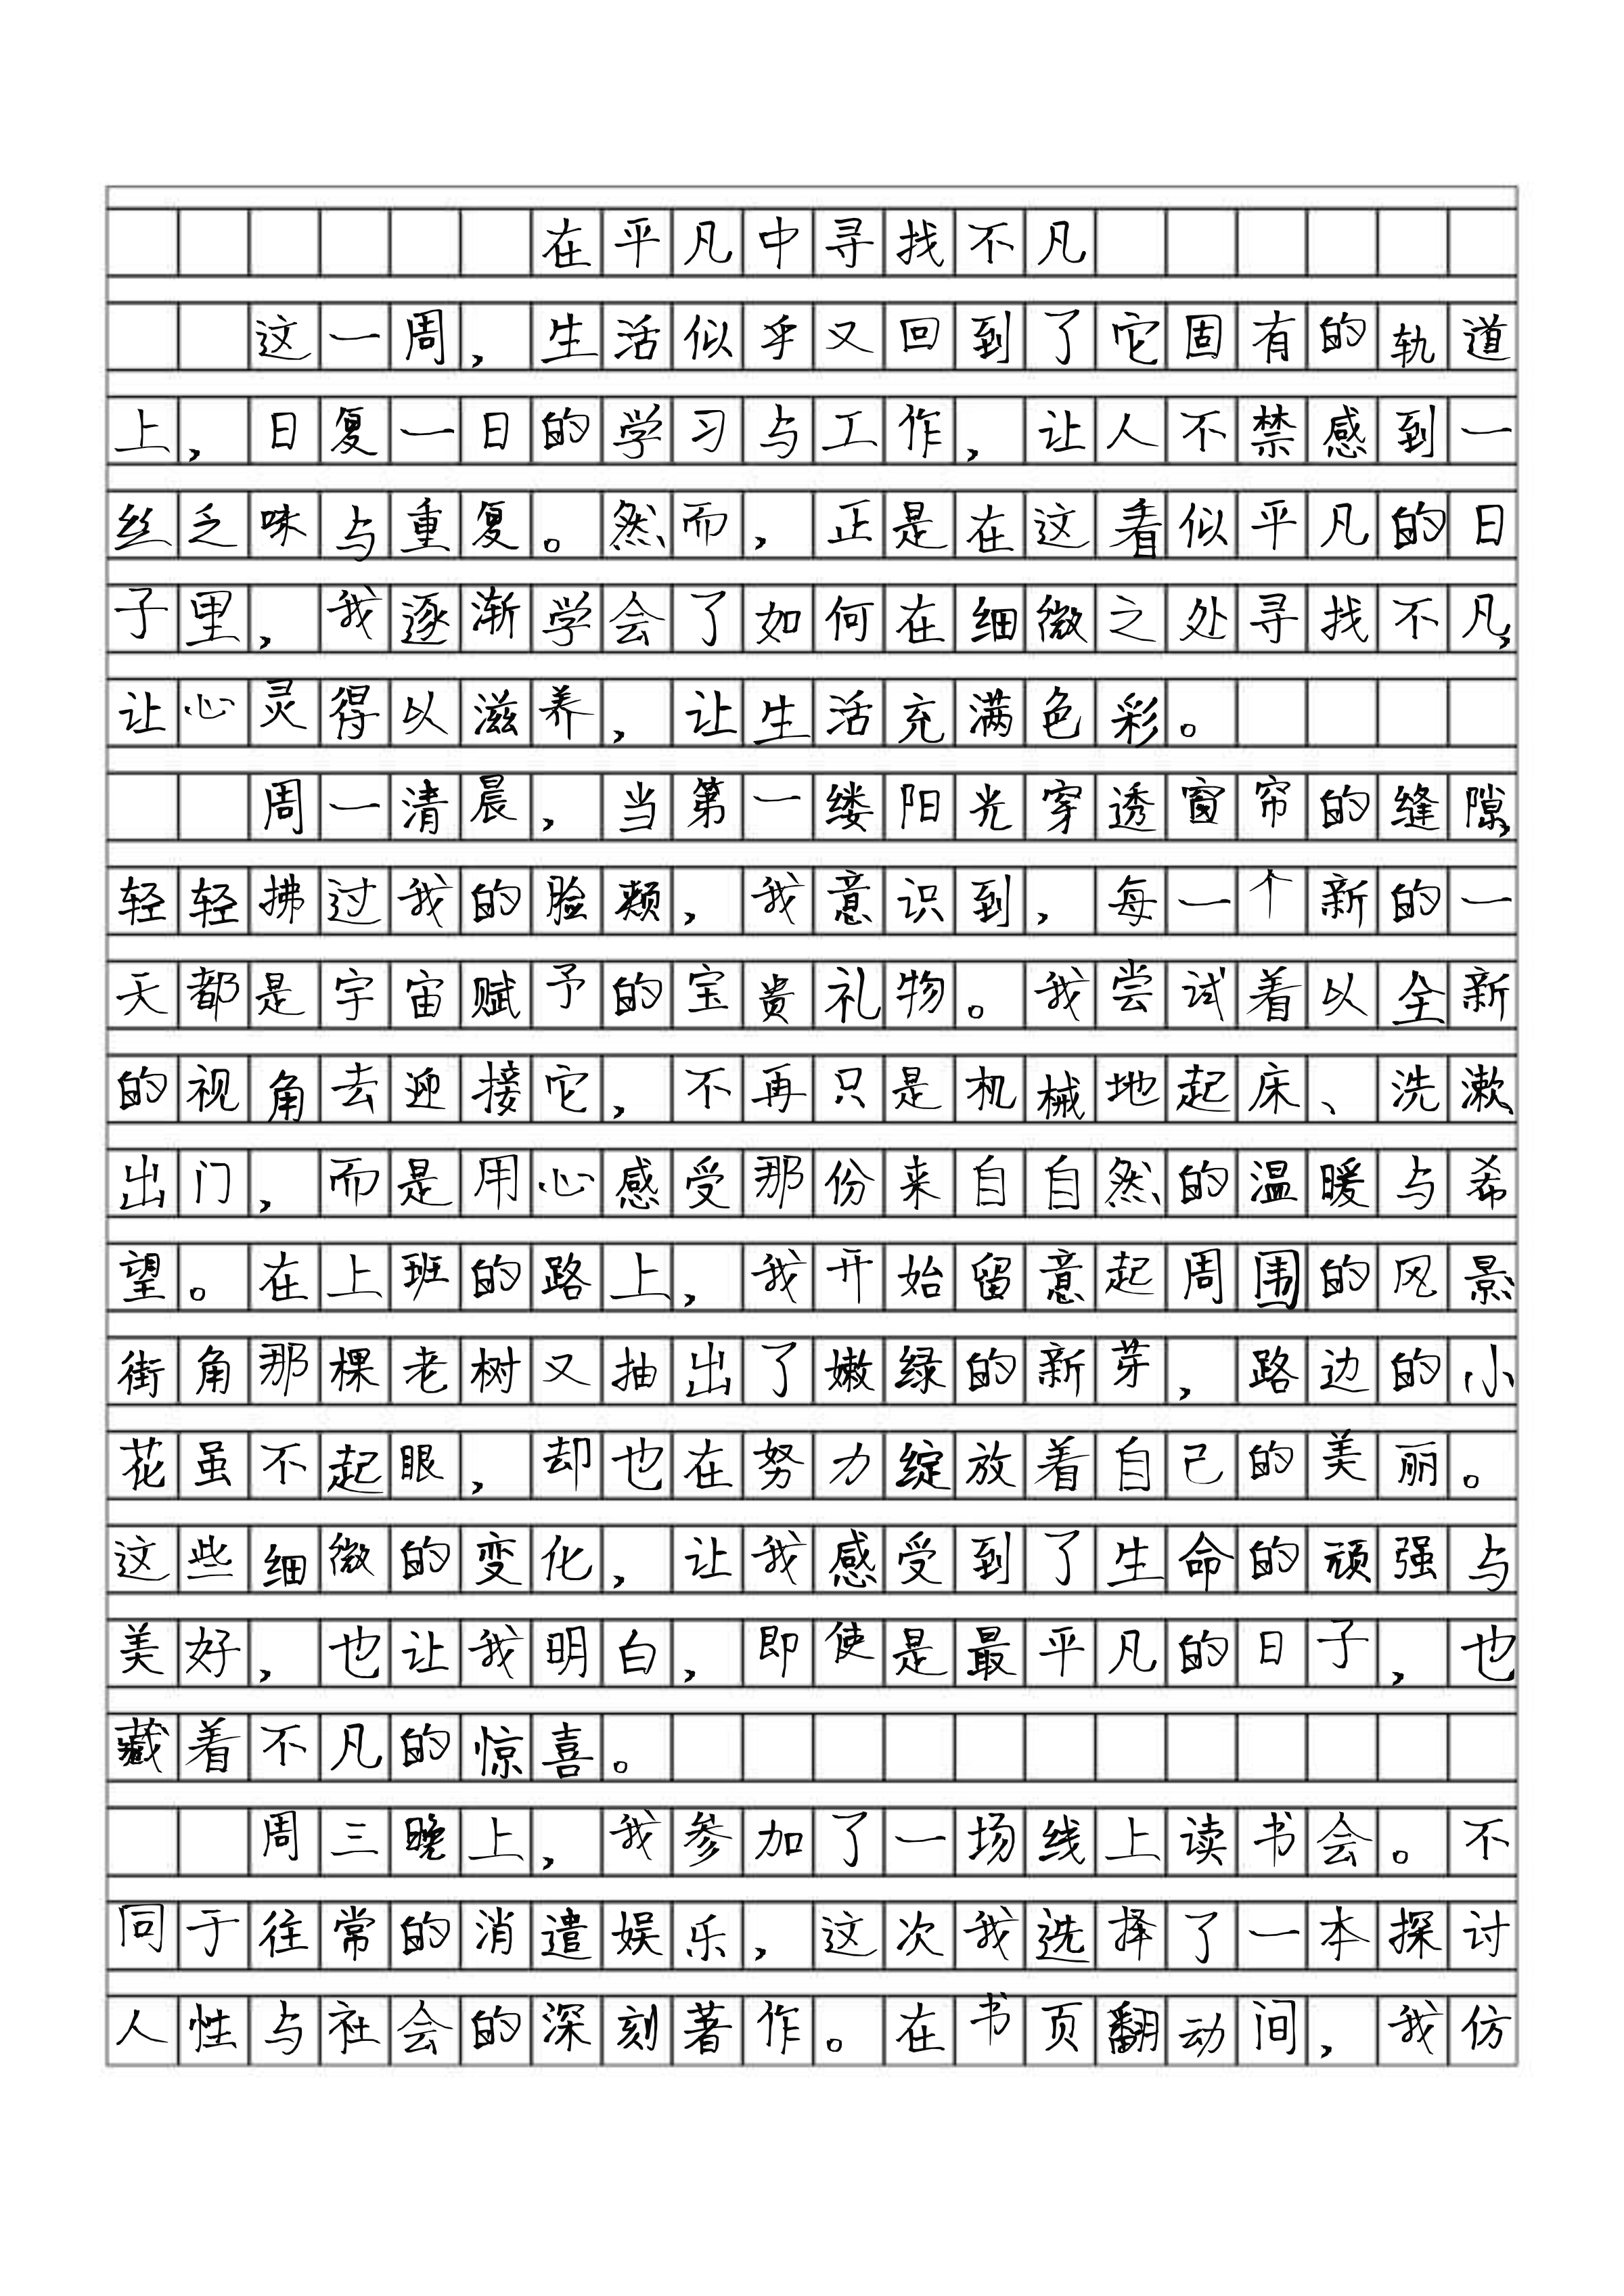 在平凡中寻找不凡
这一周，生活似乎又回到了它固有的轨道
上，日复一日的学习与工作，让人不禁感到一
丝乏味与重复。然而，正是在这看似平凡的日
子里，我逐渐学会了如何在细微之处寻找不凡，
让心灵得以滋养，让生活充满色彩。
周一清晨，当第一缕阳光穿透窗帘的缝隙，
轻轻拂过我的脸颊，我意识到，每一个新的一
天都是宇宙赋予的宝贵礼物。我尝试着以全新
的视角去迎接它，不再只是机械地起床、洗漱、
出门，而是用心感受那份来自自然的温暖与希
望。在上班的路上，我开始留意起周围的风景、
街角那棵老树又抽出了嫩绿的新芽，路边的小
花虽不起眼，却也在努力绽放着自己的美丽。
这些细微的变化，让我感受到了生命的顽强与
美好，也让我明白，即使是最平凡的日子，也
藏着不凡的惊喜。
周三晚上，我参加了一场线上读书会。不
同于往常的消遣娱乐，这次我选择了一本探讨
人性与社会的深刻著作。在书页翻动间，我仿